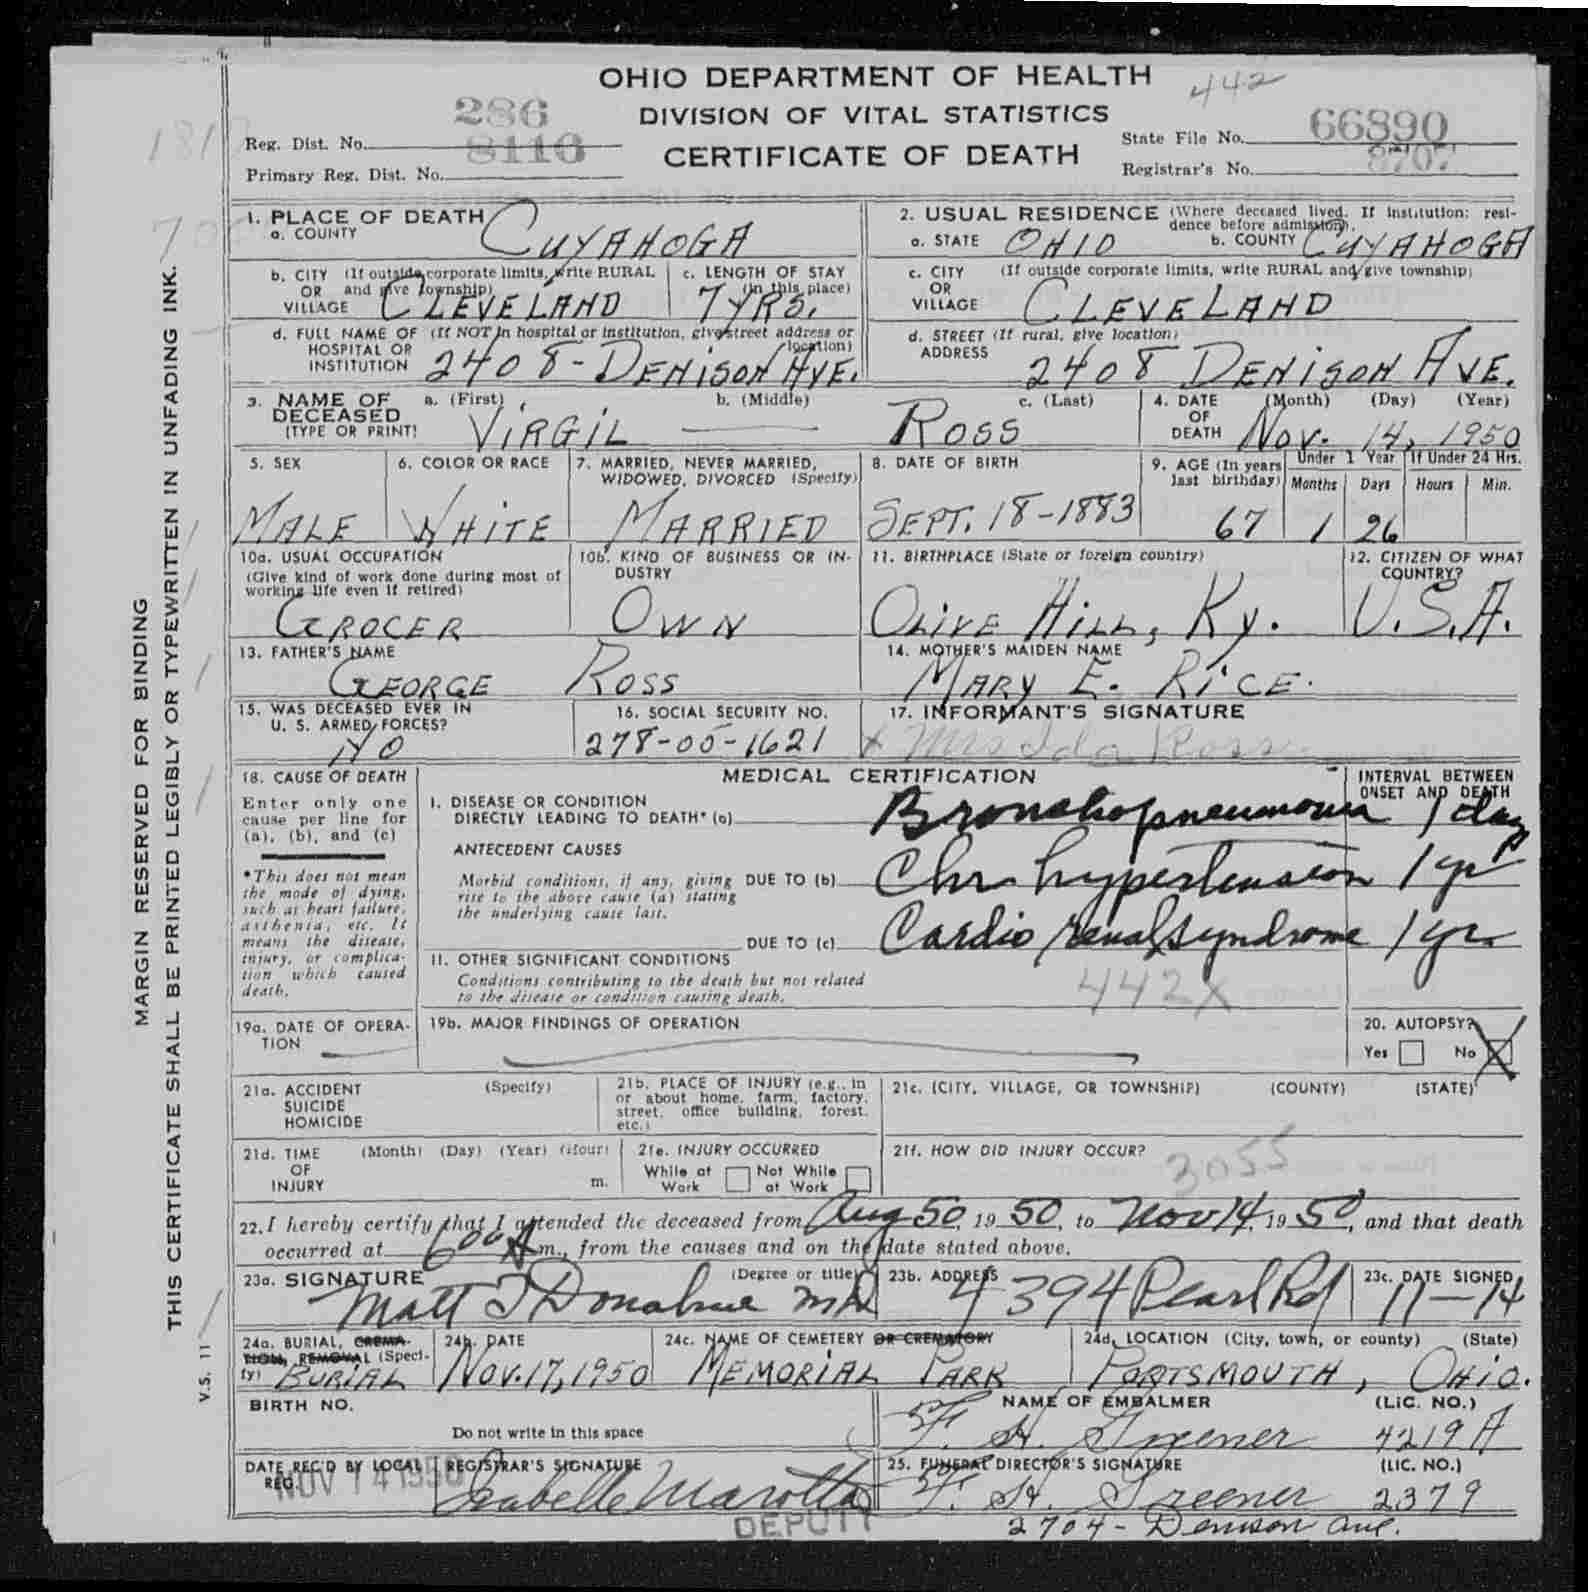 OHIO DEPARTMENT OF HEALTH
442
DIVISION OF VITAL STATISTICS
CERTIFICATE OF DEATH
Reg. Dist. No. 286
Primary Reg. Dist. No. 8116
State File No. 66890
Registrar's No. 8707
1. PLACE OF DEATH
a. COUNTY CUYAHOGA
2. USUAL RESIDENCE (Where deceased lived. If institution: residence before admission).
a. STATE OHIO b. COUNTY CUYAHOGA
b. CITY (If outside corporate limits, write RURAL
OR and give township)
VILLAGE CLEVELAND
c. LENGTH OF STAY
(in this place)
7 YRS.
c. CITY (If outside corporate limits, write RURAL and give township)
OR
VILLAGE CLEVELAND
d. FULL NAME OF (If NOT in hospital or institution, give street address or
HOSPITAL OR location)
INSTITUTION 2408 - DENISON AVE.
d. STREET (If rural, give location)
ADDRESS 2408 DENISON AVE.
3. NAME OF DECEASED
(TYPE OR PRINT)
a. (First) b. (Middle) c. (Last)
VIRGIL — ROSS
4. DATE OF DEATH (Month) (Day) (Year)
NOV. 14, 1950
5. SEX
MALE
6. COLOR OR RACE
WHITE
7. MARRIED, NEVER MARRIED,
WIDOWED, DIVORCED (Specify)
MARRIED
8. DATE OF BIRTH
SEPT. 18-1883
9. AGE (In years
last birthday)
67
Under 1 Year
Months Days
1 26
If Under 24 Hrs.
Hours Min.
10a. USUAL OCCUPATION
(Give kind of work done during most of
working life even if retired)
GROCER
10b. KIND OF BUSINESS OR IN-
DUSTRY
OWN
11. BIRTHPLACE (State or foreign country)
OLIVE HILL, KY.
12. CITIZEN OF WHAT
COUNTRY?
U.S.A.
13. FATHER'S NAME
GEORGE ROSS
14. MOTHER'S MAIDEN NAME
MARY E. RICE.
15. WAS DECEASED EVER IN
U. S. ARMED FORCES?
NO
16. SOCIAL SECURITY NO.
278-05-1621
17. INFORMANT'S SIGNATURE
x Mrs Ida Ross
18. CAUSE OF DEATH
Enter only one
cause per line for
(a), (b), and (c)
*This does not mean
the mode of dying,
such as heart failure,
asthenia, etc. It
means the disease,
injury, or complica-
tion which caused
death.
MEDICAL CERTIFICATION
INTERVAL BETWEEN
ONSET AND DEATH
I. DISEASE OR CONDITION
DIRECTLY LEADING TO DEATH* (a) Bronchopneumonia 1 day
ANTECEDENT CAUSES
Morbid conditions, if any, giving
rise to the above cause (a) stating
the underlying cause last.
DUE TO (b) Chr hypertension 1 yr
DUE TO (c) Cardio renal syndrome 1 yr
II. OTHER SIGNIFICANT CONDITIONS
Conditions contributing to the death but not related
to the disease or condition causing death.
442X
19a. DATE OF OPERA-
TION
19b. MAJOR FINDINGS OF OPERATION
20. AUTOPSY?
Yes No X
21a. ACCIDENT (Specify)
SUICIDE
HOMICIDE
21b. PLACE OF INJURY (e.g., in
or about home, farm, factory,
street, office building, forest,
etc.)
21c. (CITY, VILLAGE, OR TOWNSHIP) (COUNTY) (STATE)
21d. TIME (Month) (Day) (Year) (Hour)
OF
INJURY m.
21e. INJURY OCCURRED
While at Work Not While at Work
21f. HOW DID INJURY OCCUR?
3055
22. I hereby certify that I attended the deceased from Aug 50, 1950, to Nov 14, 1950, and that death
occurred at 600 A m., from the causes and on the date stated above.
23a. SIGNATURE (Degree or title)
Matt J Donahue MD
23b. ADDRESS
4394 Pearl Rd
23c. DATE SIGNED
11-14
24a. BURIAL, CREMA-
TION, REMOVAL (Speci-
fy) BURIAL
24b. DATE
NOV. 17, 1950
24c. NAME OF CEMETERY OR CREMATORY
MEMORIAL PARK
24d. LOCATION (City, town, or county) (State)
PORTSMOUTH, OHIO.
BIRTH NO.
Do not write in this space
NAME OF EMBALMER (LIC. NO.)
F. H. Greener 4219 A
DATE REC'D BY LOCAL
REG.
NOV 14 1950
REGISTRAR'S SIGNATURE
Isabelle Marotta
DEPUTY
25. FUNERAL DIRECTOR'S SIGNATURE (LIC. NO.)
F. H. Greener 2379
2704 - Denison Ave.
MARGIN RESERVED FOR BINDING
THIS CERTIFICATE SHALL BE PRINTED LEGIBLY OR TYPEWRITTEN IN UNFADING INK.
V.S. 11